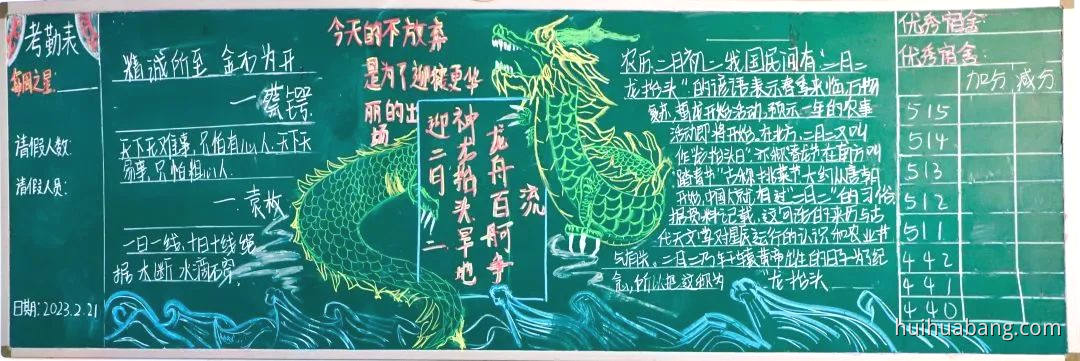 考勤表
每周之星:
请假人数:
请假人员:
日期:2023.2.21
精诚所至 金石为开
一 蔡锷
天下无难事,只怕有心人,天下无
易事,只怕粗心人.
一.袁枚
一日一线,十日十线,绳
据木断 水滴石穿
今天的不放弃
是为了迎接更华
丽的出
场
迎二月二
神龙抬头旱地
龙舟百舸争
流
农历二月初二我国民间有"二月二
龙抬头"的谚语表示春季来临,万物
复苏,蛰龙开始活动,预示一年的农事
活动即将开始,在北方,二月二又叫
作"龙抬头日"亦称春龙节,在南方叫
踏青节,古称挑菜节,大约从唐朝
开始,中国人就有过"二月二"的习俗
据资料记载,这句话的来历与古
代天文学对星辰运行的认识和农业节
气有关,二月二乃
"龙抬头
优秀宿舍
优秀宿舍:
加分 减分
515
514
513
512
511
442
441
440
huihuabang.com